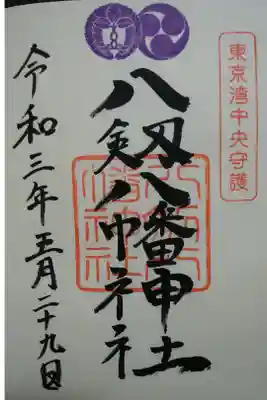 東京湾中央守護
八剱八幡神社
令和三年五月二十九日